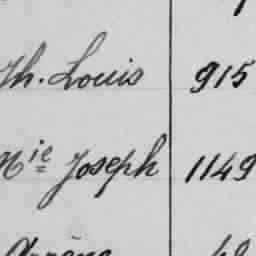 Th. Louis 915
Nie Joseph 1149